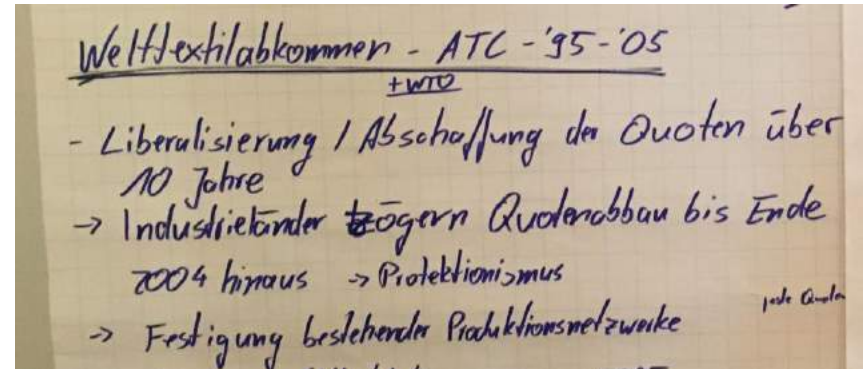 Welttextilabkommen - ATC - '95 - '05
+ WTO
- Liberalisierung / Abschaffung der Quoten über
10 Jahre
→ Industrieländer zögern Quotenabbau bis Ende
2004 hinaus → Protektionismus
→ Festigung bestehender Produktionsnetzwerke